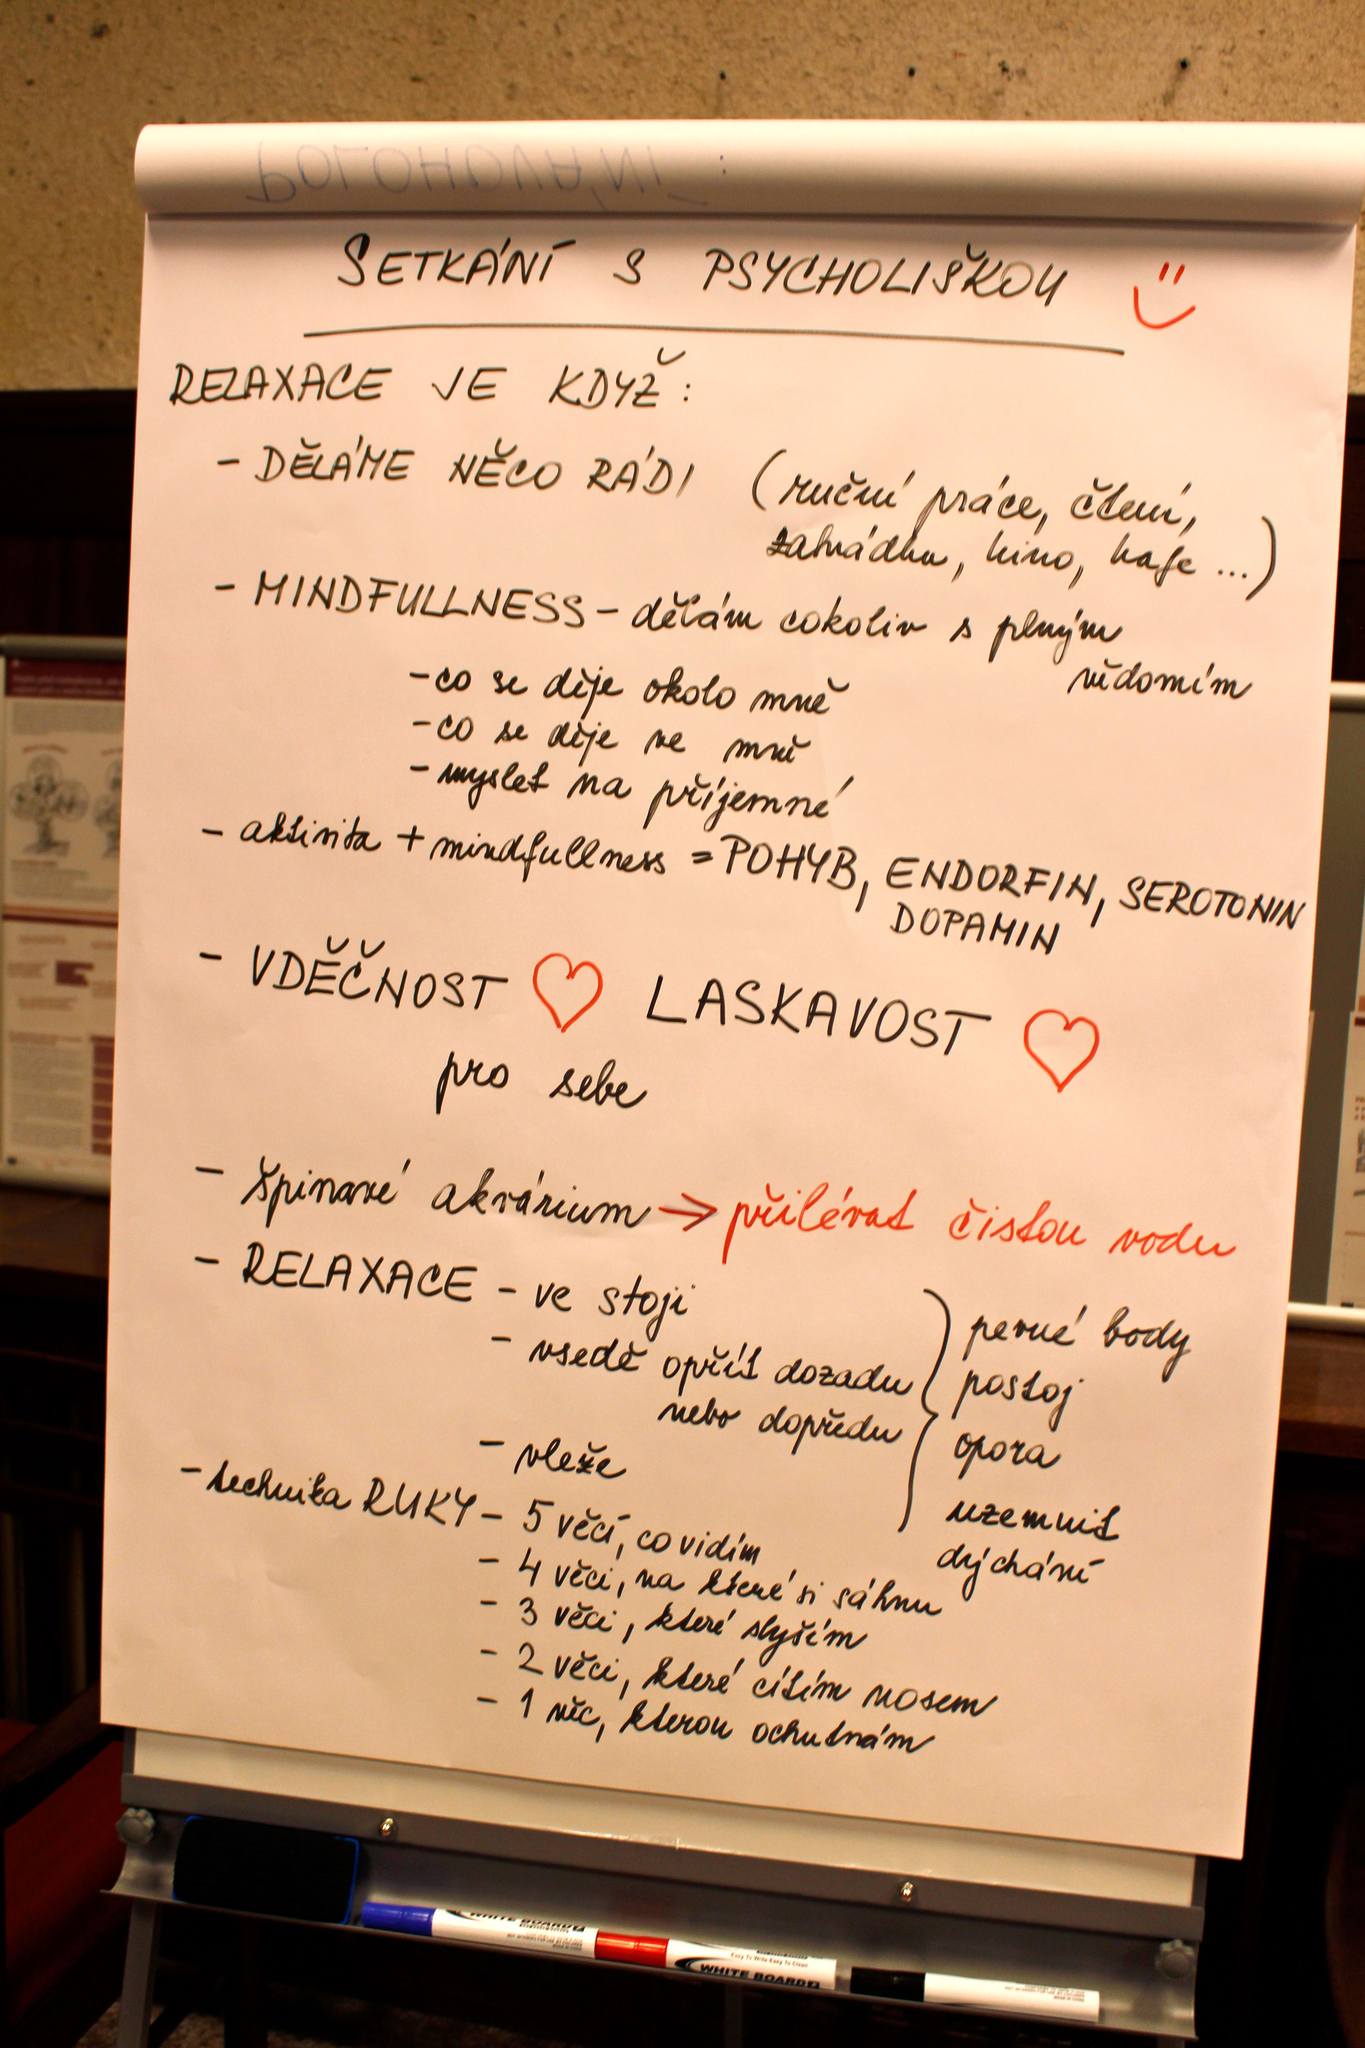 POLOHOVÁNÍ:
SETKÁNÍ S PSYCHOLIŠKOU
RELAXACE JE KDYŽ:
- DĚLÁME NĚCO RÁDI (ruční práce, čtení,
zahrádku, kino, kafe ...)
- MINDFULLNESS - dělám cokoliv s plným
vědomím
- co se děje okolo mně
- co se děje ve mně
- myslet na příjemné
- aktivita + mindfullness = POHYB, ENDORFIN, SEROTONIN
DOPAMIN
- VDĚČNOST ♡ LASKAVOST ♡
pro sebe
- špinavé akvárium → přilévat čistou vodu
- RELAXACE - ve stoji
- vsedě opřít dozadu
nebo dopředu
- vleže
pevné body
postoj
opora
uzemnit
dýchání
- technika RUKY - 5 věcí, co vidím
- 4 věci, na které si sáhnu
- 3 věci, které slyším
- 2 věci, které cítím nosem
- 1 věc, kterou ochutnám
WHITE BOARD
WHITE BOARD
Easy To Write Easy To Clean